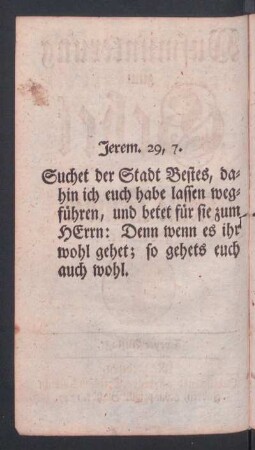 Jerem. 29, 7.
Suchet der Stadt Bestes, da-
hin ich euch habe lassen weg-
führen, und betet für sie zum
HErrn: Denn wenn es ihr
wohl gehet; so gehets euch
auch wohl.